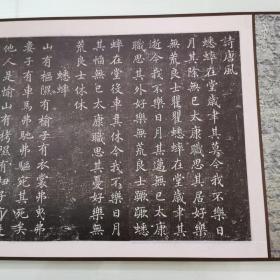 詩唐風
蟋蟀在堂歲聿其莫今我不樂日
月其除無已太康職思其居好樂
無荒良士瞿瞿蟋蟀在堂歲聿其
逝今我不樂日月其邁無已太康
職思其外好樂無荒良士蹶蹶蟋
蟀在堂役車其休今我不樂日月
其慆無已太康職思其憂好樂無
荒良士休休
蟋蟀
山有樞隰有榆子有衣裳弗曳弗
婁子有車馬弗馳弗驅宛其死矣
他人是愉山有栲隰有杻子有